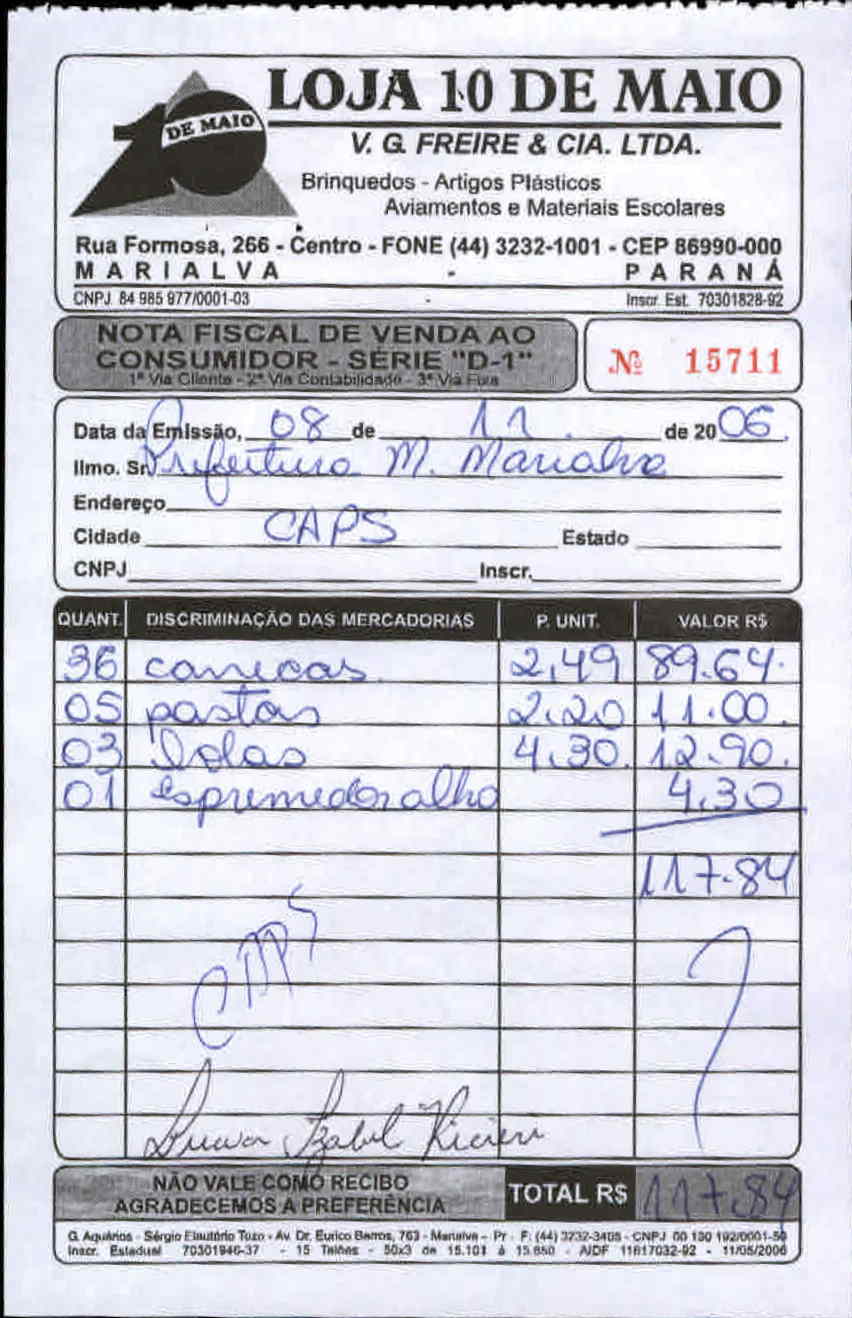 LOJA 10 DE MAIO
DE MAIO
V. G. FREIRE & CIA. LTDA.
Brinquedos - Artigos Plásticos
Aviamentos e Materiais Escolares
Rua Formosa, 266 - Centro - FONE (44) 3232-1001 - CEP 86990-000
MARIALVA - PARANÁ
CNPJ 84 985 977/0001-03 Inscr. Est. 70301828-92
NOTA FISCAL DE VENDA AO
CONSUMIDOR - SÉRIE "D-1"
1ª Via Cliente - 2ª Via Contabilidade - 3ª Via Fixa
Nº 15711
Data da Emissão, 08 de 11 de 2006
Ilmo. Sr. Prefeitura M. Marialva
Endereço
Cidade CAPS Estado
CNPJ Inscr.
QUANT. DISCRIMINAÇÃO DAS MERCADORIAS P. UNIT. VALOR R$
36 canecas 2,49 89.64
05 pastas 2.20 11.00
03 bolas 4.30 12.90
01 espremedor alho 4.30
117.84
CAPS
Izabel
NÃO VALE COMO RECIBO
AGRADECEMOS A PREFERÊNCIA
TOTAL R$ 117.84
G. Aquários - Sérgio Eleutério Tozo - Av. Dr. Eurico Barros, 763 - Marialva - Pr - F: (44) 3232-3405 - CNPJ 00 130 192/0001-50
Inscr. Estadual 70301946-37 - 15 Talões - 50x3 de 15.101 à 15.850 - AIDF 11617032-92 - 11/05/2006